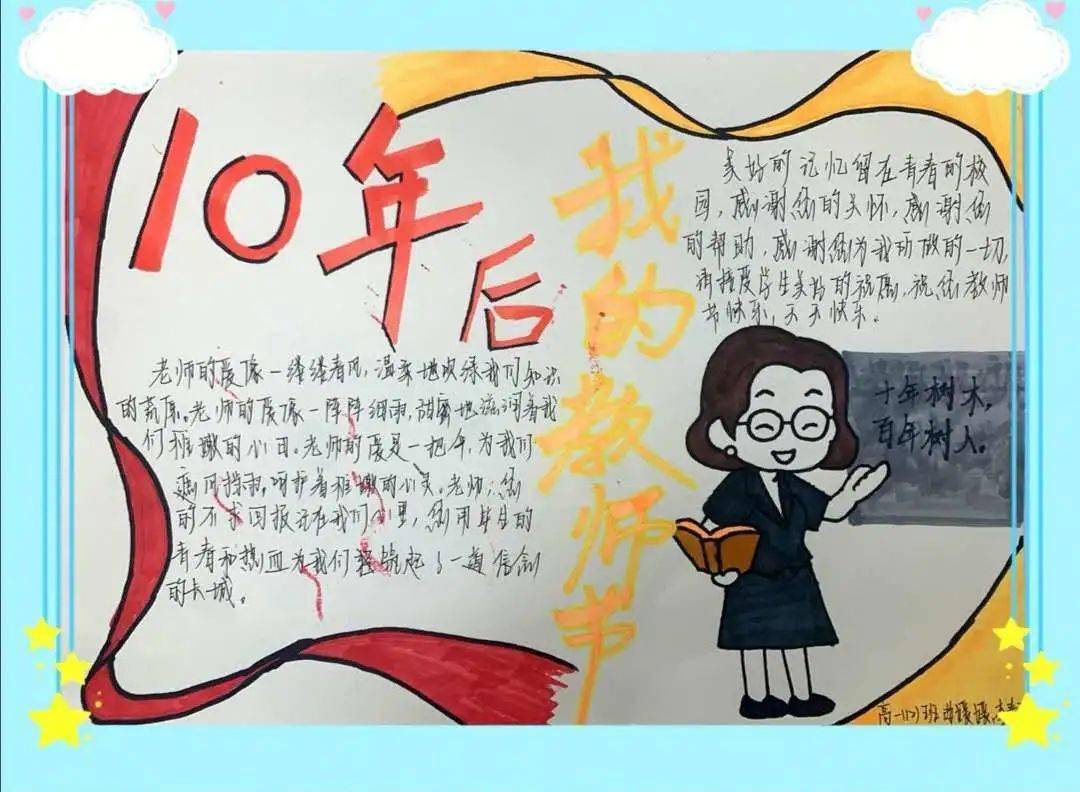 10年后
我的教师节
美好的记忆留在青春的校
园，感谢您的关怀，感谢您
的帮助，感谢您为我所做的一切，
请接受学生美好的祝愿，祝您教师
节快乐，天天快乐。
老师的爱像一缕缕春风，温柔地吹绿我们知识
的荒原。老师的爱像一阵阵细雨，甜蜜地滋润着我
们稚嫩的心田。老师的爱是一把伞，为我们
遮风挡雨，呵护着稚嫩的心灵。老师，您
的不求回报记在我们心里，您用毕生的
青春和热血为我们铸起了一道信念
的长城。
十年树木，
百年树人。
高一 班